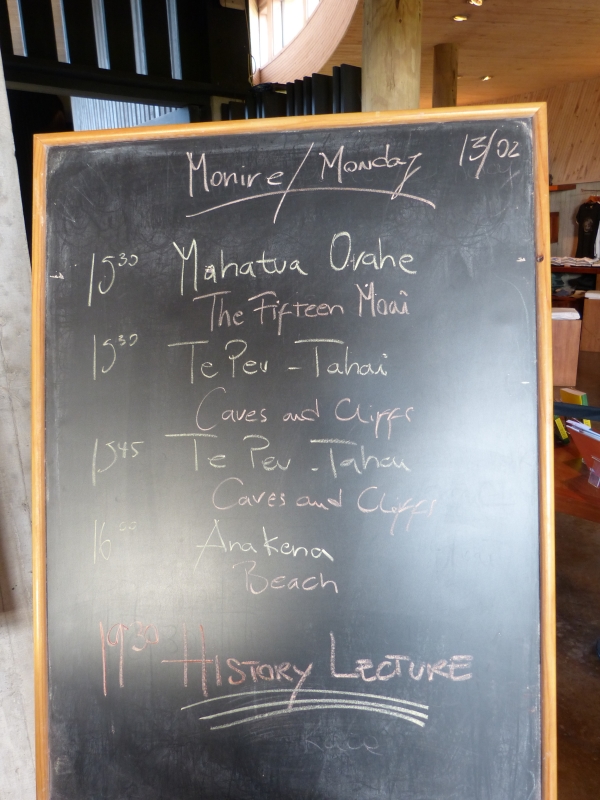 Monire/Monday 13/02
15 30 Mahatua Orahe
The Fifteen Moai
15 30 Te Peu - Tahai
Caves and Cliffs
15 45 Te Peu - Tahai
Caves and Cliffs
16 00 Anakena
Beach
19 30 HISTORY LECTURE